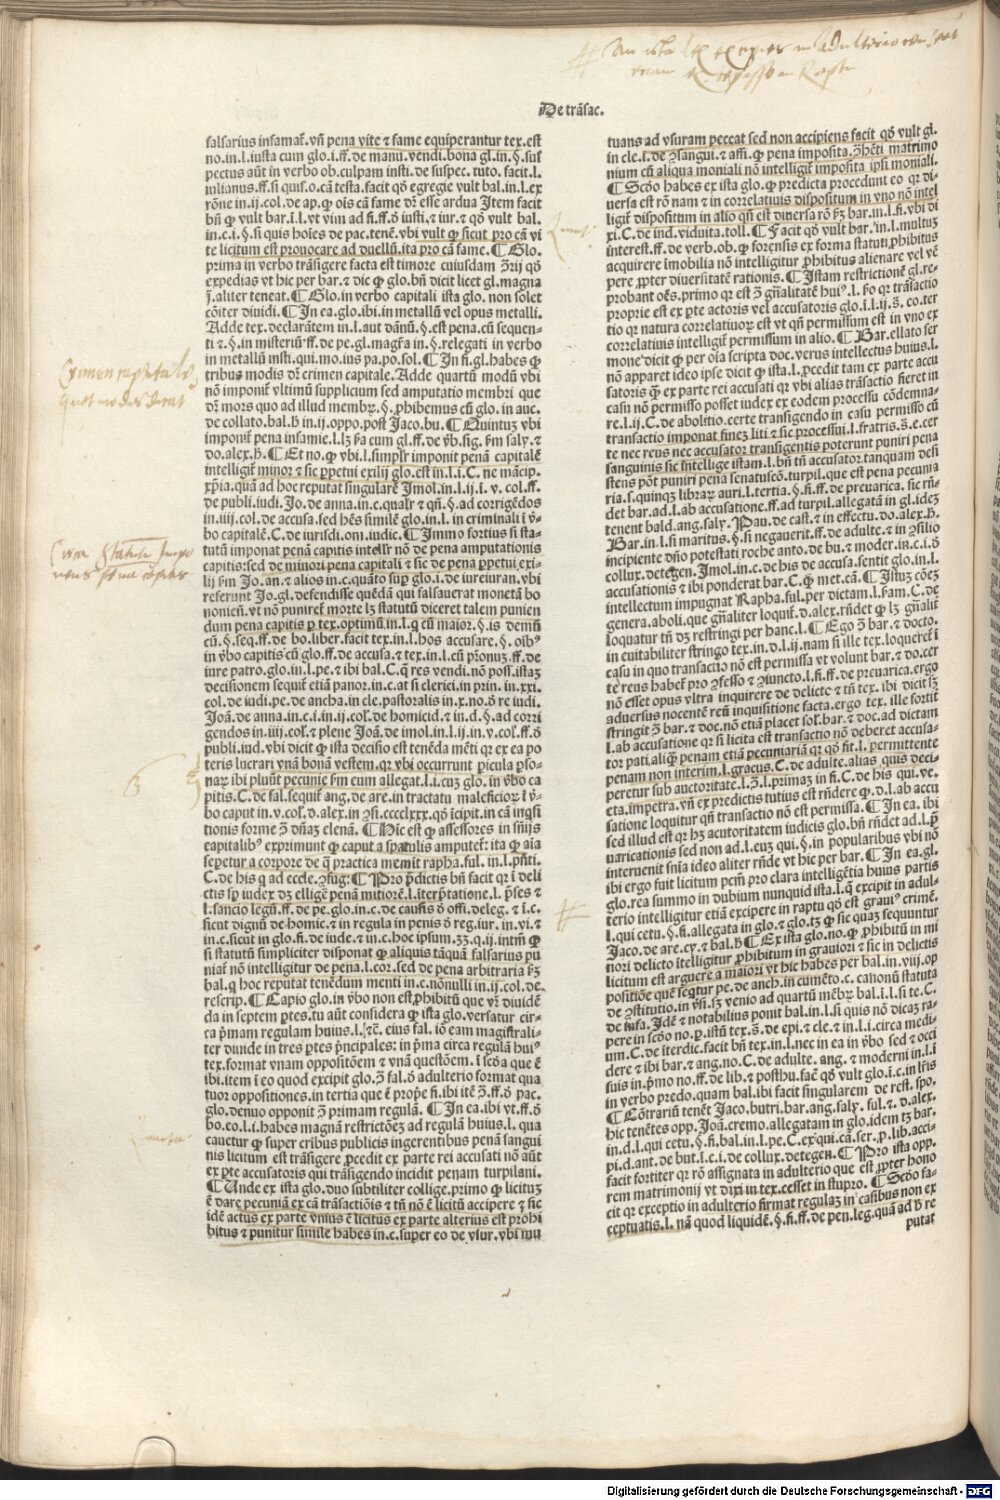 De trãsac.
falsarius infamaꝉ. vñ pena vite ⁊ fame equiperantur tex. est
no. in. l. iusta cum glo. i. ff. de manu. vendi. bona gl. in. §. sus
pectus aũt in verbo ob. culpam insti. de suspec. tuto. facit. l.
iulianus. ff. si quis. o. cã testa. facit qõ egregie vult bal. in. l. ex
rõne in. ij. col. de ap. ꝙ ois cã fame dr̃ esse ardua Item facit
bñ ꝙ vult bar. i. l. vt vim ad fi. ff. õ iusti. ⁊ iur. ⁊ qõ vult bal.
in. c. i. §. si quis hoĩes de pac. tenẽ. vbi vult ꝙ sicut pro cã vi
te licitum est prouocare ad duellũ. ita pro cã fame. ¶ Glo.
prima in verbo trãsigere facta est timore cuiusdam ꝯ̃rij qõ
expedias vt hic per bar. ⁊ dic ꝙ glo. bñ dicit licet gl. magna
j̃. aliter teneat. ¶ Glo. in verbo capitali ista glo. non solet
cõiter diuidi. ¶ In ea. glo. ibi in metallũ vel opus metalli.
Adde tex. declarãtem in. l. aut dãnũ. §. est pena. cũ sequen-
ti ⁊. §. in misteriũ. ff. de pe. gl. magr̃a in. §. relegati in verbo
in metallũ insti. qui. mo. ius pa. po. sol. ¶ In fi. gl. habes ꝙ
tribus modis dr̃ crimen capitale. Adde quartũ modũ vbi
nõ imponiꝉ vltimũ supplicium sed amputatio membri que
dr̃ mors quo ad illud membꝝ. §. ꝓhibemus cũ glo. in auc.
de collato. bal. ꝧ in. ij. oppo. post Jaco. bu. ¶ Quintuꝫ vbi
imponiꝉ pena infamie. l. lꝫ ꝑ̃a cum gl. ff. de ṽb. sig. ꝑ̃m saly. ⁊
do. alex. ꝧ. ¶ Et no. ꝙ vbi. l. simplr̃ imponit penã capitalẽ
intelligiꝉ minor ⁊ sic ꝑpetui exilij glo. est in. l. i. C. ne mãcip.
xp̃ia. quã ad hoc reputat singularẽ Imol. in. l. ij. i. v. col. ff.
de publi. iudi. Jo. de anna. in. c. qualr̃ ⁊ qñ. §. ad corrigẽdos
in. iiij. col. de accusa. sed hẽs similẽ glo. in. l. in criminali i ṽ-
bo capitalẽ. C. de iurisdi. om. iudic. ¶ Immo fortius si sta-
tutũ imponat penã capitis intellr̃ nõ de pena amputationis
capitis: sed de minori pena capitali ⁊ sic de pena ꝑpetui exi-
lij ꝑ̃m Jo. an. ⁊ alios in. c. quãto suꝑ glo. i. de iureiuran. vbi
referunt Jo. gl. defendisse quẽdã qui falsauerat monetã bo
nonieñ. vt nõ punireꝉ morte lꝫ statutũ diceret talem punien
dum pena capitis ꝑ tex. optimũ. in. l. q̃ cũ maior. §. is demũ
cũ. §. seq. ff. de bo. liber. facit tex. in. l. hos accusare. §. oĩbꝰ
in ṽbo capitis cũ glo. ff. de accusa. ⁊ tex. in. l. cũ pr̃onuꝫ. ff. de
iure patro. glo. in. l. pe. ⁊ ibi bal. C. q̃ res vendi. nõ poss. istaꝫ
decisionem sequiꝉ etiã panor. in. c. at si clerici. in prin. in. xxi.
col. de iudi. pe. de ancha. in cle. pastoralis in. x. no. õ re iudi.
Joã. de anna. in. c. i. in. ij. coꝉ. de homicid. ⁊ in d. §. ad corri
gendos in. iiij. coꝉ. ⁊ plene Joã. de imol. in. l. ij. in. v. col. ff. õ
publi. iud. vbi dicit ꝙ ista decisio est tenẽda mẽti qr ex ea po
teris lucrari vnã bonã vestem. qr vbi occurrunt picula ꝑso-
naꝝ ibi pluũt pecunie ꝑ̃m eum allegat. l. i. cuꝫ glo. in ṽbo ca
pitis. C. de fal. sequiꝉ ang. de are. in tractatu maleficioꝝ i ṽ-
bo caput in. v. coꝉ. d. alex. in ꝯsi. ccccLxxx. qõ icipit. in cã inq̃si
tionis forme ꝯ̃ dñaꝫ elenã. ¶ Hic est ꝙ assessores in sñijs
capitalibꝰ exprimunt ꝙ caput a spatulis amputeꝉ: ita ꝙ aĩa
seꝑetur a corpore de q̃ practica memit rapha. ful. in. l. pñti.
C. de his q̃ ad eccle. ꝯfug: ¶ Pro p̃dictis bñ facit qr i deli
ctis sꝑ iudex dꝫ eligẽ penã mitiorẽ. l. iterp̃tatione. l. p̃ses ⁊
l. sancio legũ. ff. de pe. glo. in. c. de causis õ offi. deleg. ⁊ i. c.
sicut dignũ de homic. ⁊ in regula in penis õ reg. iur. in. vi. ⁊
in. c. sicut in glo. fi. de iude. ⁊ in. c. hoc ipsum. ꝫꝫ. q. ij. intm̃ ꝙ
si statutũ simpliciter disponat ꝙ aliquis tãquã falsarius pu
niaꝉ nõ intelligitur de pena. l. cor. sed de pena arbitraria ꝑ̃ꝫ
bal. q̃ hoc reputat tenẽdum menti in. c. nõnulli in. ij. col. de.
rescrip. ¶ Capio glo. in ṽbo non est ꝓhibitũ que vr̃ diuidẽ
da in septem ꝑtes. tu aũt considera ꝙ ista glo. versatur cir-
ca p̃mam regulam huius. l. ⁊c̃. eius fal. iõ eam magistrali-
ter diuide in tres ꝑtes p̃ncipales: in p̃ma circa regulã huiꝰ
tex. format vnam oppositõem ⁊ vnã questõem. i scõa que ẽ
ibi. item i eo quod excipit glo. ꝯ̃ fal. õ adulterio format qua
tuor oppositiones. in tertia que ẽ ꝓpe fi. ibi itẽ ꝯ̃. ff. õ pac.
glo. denuo opponit ꝯ̃ primam regulã. ¶ In ea. ibi vt. ff. õ
bo. co. l. i. habes magnã restrictõeꝫ ad regulã huius. l. qua
cauetur ꝙ super cribus publicis ingerentibus penã sangui
nis licitum est trãsigere ꝓcedit ex parte rei accusati nõ aũt
ex ꝑte accusatoris qui trãsigendo incidit penam turpilani.
¶ Unde ex ista glo. duo subtiliter collige. primo ꝙ licituꝫ
ẽ dare pecuniã ex cã trãsactiõis ⁊ tñ nõ ẽ licitũ accipere ⁊ sic
idẽ actus ex parte vnius ẽ licitus ex parte alterius est prohi
bitus ⁊ punitur simile habes in. c. super eo de vsur. vbi mu
tuans ad vsuram peccat sed non accipiens facit qõ vult gl.
in cle. i. de ꝯsangui. ⁊ affi. ꝙ pena imposita. ꝯ̃hẽti matrimo
nium cũ aliqua moniali nõ intelligiꝉ imposita ipsi moniali.
¶ Scõo habes ex ista glo. ꝙ predicta procedunt eo qr di-
uersa est rõ nam ⁊ in correlatiuis dispositum in vno nõ intel
ligiꝉ dispositum in alio qñ est diuersa rõ ꝑ̃ꝫ bar. in. l. fi. vbi di
xi. C. de ind. viduita. toll. ¶ Facit qõ vult bar. in. l. multuꝫ
interest. ff. de verb. ob. ꝙ forensis ex forma statuti ꝓhibitus
acquirere imobilia nõ intelligitur ꝓhibitus alienare vel vẽ
pere ꝓpter diuersitatẽ rationis. ¶ Istam restrictionẽ gl. re-
probant oẽs. primo qr est ꝯ̃ gñalitatẽ huiꝰ. l. ꝑo qr trãsactio
proprie est ex ꝑte actoris vel accusatoris glo. i. l. ij. s̃. co. ter
tio qr natura correlatiuoꝝ est vt qñ permissum est in vno ex
correlatiuis intelligiꝉ permissum in alio. ¶ Bar. ellato ser
mone dicit ꝙ per oia scripta doc. verus intellectus huius. l.
nõ apparet ideo ipse dicit ꝙ ista. l. ꝓcedit tam ex parte accu
satoris q̃ ex parte rei accusati qr vbi alias trãsactio fieret in
casu nõ permisso posset iudex ex eodem processu cõdemna-
re. l. ij. C. de abolitio. certe transigendo in casu permisso cũ
transactio imponat fineꝫ liti ⁊ sic processui. l. fratris. s̃. e. cer
te nec reus nec accusator transigentis poterunt puniri pena
sanguinis sic intellige istam. l. bñ tñ accusator. tanquam desi
stens põt puniri pena senatuscõ. turpil. que est pena pecunia
ria. s. quinqꝫ libraꝝ auri. l. tertia. §. fi. ff. de preuarica. sic rñ-
det bar. ad. l. ab accusatione. ff. ad turpil. allegatã in gl. ideꝫ
tenent bald. ang. saly. Pau. de cast. ⁊ in effectu. do. alex. ꝧ.
Bar. in. l. si maritus. §. si negauerit. ff. de adulte. ⁊ in ꝯsilio
incipiente dñõ potestati roche anto. de bu. ⁊ moder. in. c. i. õ
collux. detegen. Imol. in. c. de his de accusa. sentit glo. in. l.
accusationis ⁊ ibi ponderat bar. C. q̃ met. cã. ¶ Istuꝫ cõeꝫ
intellectum impugnat Rapha. ful. per dictam. l. fram. C. de
genera. aboli. que gñaliter loquiꝉ. d. alex. rñdet ꝙ lꝫ gñaliꝉ
loquatur tñ dꝫ restringi per hanc. l. ¶ Ego ꝯ̃ bar. ⁊ docto.
in euitabiliter stringo tex. in. d. l. ij. nam si ille tex. loquereꝉ i
casu in quo transactio nõ est permissa vt volunt bar. ⁊ do. cer
te reus habeꝉ pro ꝯfesso ⁊ ꝯiuncto. l. fi. ff. de preuarica. ergo
nõ esset opus vltra inquirere de delicto ⁊ tñ tex. ibi dicit sꝫ
aduersus nocentẽ reũ inquisitione facta. ergo tex. ille fortiꝉ
stringit ꝯ̃ bar. ⁊ doc. nõ etiã placet soꝉ. bar. ⁊ doc. ad dictam
l. ab accusatione qr si licita est transactio nõ deberet accusa-
tor pati. aliq̃ penam etiã pecuniariã qr qõ fit. l. permittente
penam non interim. l. gracus. C. de adulte. alias quis deci-
peretur sub auctoritate. l. ꝯ̃. l. primaꝫ in fi. C. de his qui. ve.
eta. impetra. vñ ex predictis tutius est rñdere ꝙ. d. l. ab accu
satione loquitur qñ transactio nõ est permissa. ¶ In ea. ibi
sed illud est qr hꝫ autoritatem iudicis glo. bñ rñdet ad. l. p̃
uaricationis sed non ad. l. euꝫ qui. §. in popularibus vbi nõ
interuenit sñia ideo aliter rñde vt hic per bar. ¶ In ea. gl.
ibi ergo fuit licitum pcm̃ pro clara intelligẽtia huius partis
glo. rea summo in dubium nunquid ista. l. q̃ excipit in adul-
terio intelligitur etiã excipere in raptu qõ est grauiꝰ crimẽ.
l. qui cetu. §. fi. allegata in glo. ⁊ glo. tꝫ ꝙ sic quaꝫ sequuntur
Jaco. de are. cy. ⁊ bal. ꝧ ¶ Ex ista glo. no. ꝙ ꝓhibitũ in mi
nori delicto itelligiꝉ ꝓhibitum in grauiori ⁊ sic in delictis
licitum est arguere a maiori vt hic habes per bal. in. viij. op
positiõe quẽ seqꝉur pe. de anch. in cumẽto. c. canonũ statuta
de ꝯstitutio. in ṽsi. sꝫ venio ad quartũ mẽbꝝ bal. i. l. si te. C.
de insa. Idẽ ⁊ notabilius ponit bal. in. l. si quis nõ dicaꝫ ra-
pere in scõo no. ꝑ istũ tex. s̃. de epi. ⁊ cle. ⁊ in. l. i. circa medi-
um. C. de iterdic. facit bñ tex. in. l. nec in ea in ṽbo sed ⁊ occi
dere ⁊ ibi bar. ⁊ ang. no. C. de adulte. ang. ⁊ moderni in. l. i
suis in. p̃mo no. ff. de lib. ⁊ posthu. facẽ qõ vult glo. i. c. in lr̃is
in verbo predo. quam bal. ibi facit singularem de rest. spo.
¶ Eõtrariũ tenẽt Jaco. butri. bar. ang. saly. ful. ⁊. d. alex.
hic tenẽtes opp. Joã. cremo. allegatam in glo. idem tꝫ bar.
in. d. l. qui cetu. §. fi. bal. in. l. pe. C. ex qui. cã. ser. ꝓ. lib. acci-
pi. d. ant. de but. l. c. i. de collux. detegen. ¶ Pro ista opp.
facit fortiter qr rõ assignata in adulterio que est ꝓpter hono
rem matrimonij vt dixi in tex. cesset in stupro. ¶ Scõo fa-
cit qr exceptio in adulterio firmat regulaꝫ in casibus non ex
ceptuatis. l. nã quod liquidẽ. §. fi. ff. de pen. leg. quã ad ꝧ re
putat
Crimen capitale
quot modis dicat
Digitalisierung gefördert durch die Deutsche Forschungsgemeinschaft - DFG